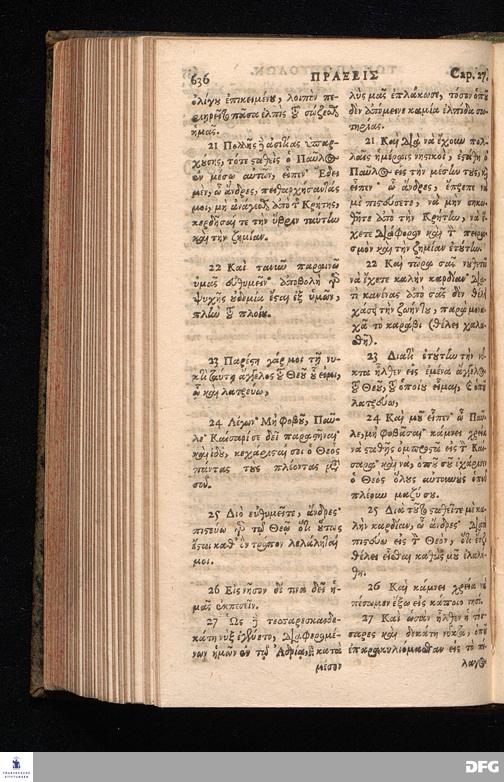 636 ΠΡΑΞΕΙΣ Cap. 27.
ὀλίγου ἐπικειμένου, λοιπὸν πε-
ριῃρεῖτο πᾶσα ἐλπὶς τοῦ σώζεσθαι
ἡμᾶς.
21 Πολλῆς δὲ ἀσιτίας ὑπαρ-
χούσης, τότε σταθεὶς ὁ Παῦλος
ἐν μέσῳ αὐτῶν, εἶπεν Ἔδει
μὲν, ὦ ἄνδρες, πειθαρχήσαντάς
μοι, μὴ ἀνάγεσθαι ἀπὸ τῆς Κρήτης,
κερδῆσαί τε τὴν ὕβριν ταύτην
καὶ τὴν ζημίαν.
22 Καὶ τανῦν παραινῶ
ὑμᾶς εὐθυμεῖν· ἀποβολὴ γὰρ
ψυχῆς οὐδεμία ἔσται ἐξ ὑμῶν,
πλὴν τοῦ πλοίου.
23 Παρέστη γάρ μοι τῇ νυ-
κτὶ ταύτῃ ἄγγελος τοῦ Θεοῦ οὗ εἰμι,
ᾧ καὶ λατρεύω,
24 Λέγων· Μὴ φοβοῦ, Παῦ-
λε· Καίσαρί σε δεῖ παραστῆναι·
καὶ ἰδοὺ, κεχάρισταί σοι ὁ Θεὸς
πάντας τοὺς πλέοντας μετὰ
σοῦ.
25 Διὸ εὐθυμεῖτε, ἄνδρες·
πιστεύω γὰρ τῷ Θεῷ ὅτι οὕτως
ἔσται καθ' ὃν τρόπον λελάληταί
μοι.
26 Εἰς νῆσον δέ τινα δεῖ ἡ-
μᾶς ἐκπεσεῖν.
27 Ὡς δὲ τεσσαρεσκαιδε-
κάτη νὺξ ἐγένετο, διαφερομέ-
νων ἡμῶν ἐν τῷ Ἀδρίᾳ, κατὰ
μέσον
λὺς μᾶς ἐπλάκωσε, τόσον ὁποῦ
δὲν ἀπόμεινε καμία ἐλπίδα σω-
τηρίας.
21 Καὶ διὰ νὰ ἔχουν πολ-
λαῖς ἡμέραις νηστικοὶ, ἐστάθη ὁ
Παῦλος εἰς τὴν μέσην τους, καὶ
εἶπεν· ὦ ἄνδρες, ἔπρεπε νὰ
μὲ πιστεύσετε, νὰ μὴν σηκω-
θῆτε ἀπὸ τὴν Κρήτην, νὰ ἔ-
χετε διάφορον καὶ τὸν πειρα-
σμὸν καὶ τὴν ζημίαν ἐτούτην.
22 Καὶ τώρα σᾶς νουθετῶ
νὰ ἔχετε καλὴν καρδίαν· δια-
τὶ κανένας ἀπὸ σᾶς δὲν θέλει
χάσει τὴν ζωήν του, παρὰ μονα-
χὰ τὸ καράβι (θέλει χαλα-
σθῆ).
23 Διατὶ ἐτούτην τὴν νύ-
κτα ἦλθεν εἰς ἐμένα ἄγγελος
τοῦ Θεοῦ, τοῦ ὁποίου εἶμαι, καὶ ὁποῦ
λατρεύω,
24 Καὶ μοῦ εἶπεν· ὦ Παῦ-
λε, μὴ φοβᾶσαι· κάμνει χρεία
νὰ σταθῇς ὀμπροστὰ εἰς τὸν Καί-
σαρα· καὶ νὰ, ὁποῦ σοῦ ἐχάρισεν
ὁ Θεὸς ὅλους αὐτουνοὺς ὁποῦ
πλέουν μαζί σου.
25 Διὰ τοῦτο σταθεῖτε μὲ κα-
λὴν καρδίαν, ὦ ἄνδρες· διατὶ
πιστεύω εἰς τὸν Θεὸν, ὅτι ἔτζι
θέλει εἶσθαι καθὼς μοῦ ἐλαλή-
θη.
26 Καὶ κάμνει χρεία νὰ
πέσωμεν ἔξω εἰς κᾄποιο νησί.
27 Καὶ ὡσὰν ἦλθεν ἡ τέσ-
σαρες καὶ δεκάτη νύκτα, ὁποῦ
ἐπαρακυλιόμασθαν εἰς τὸ πέ-
λαγος
DFG